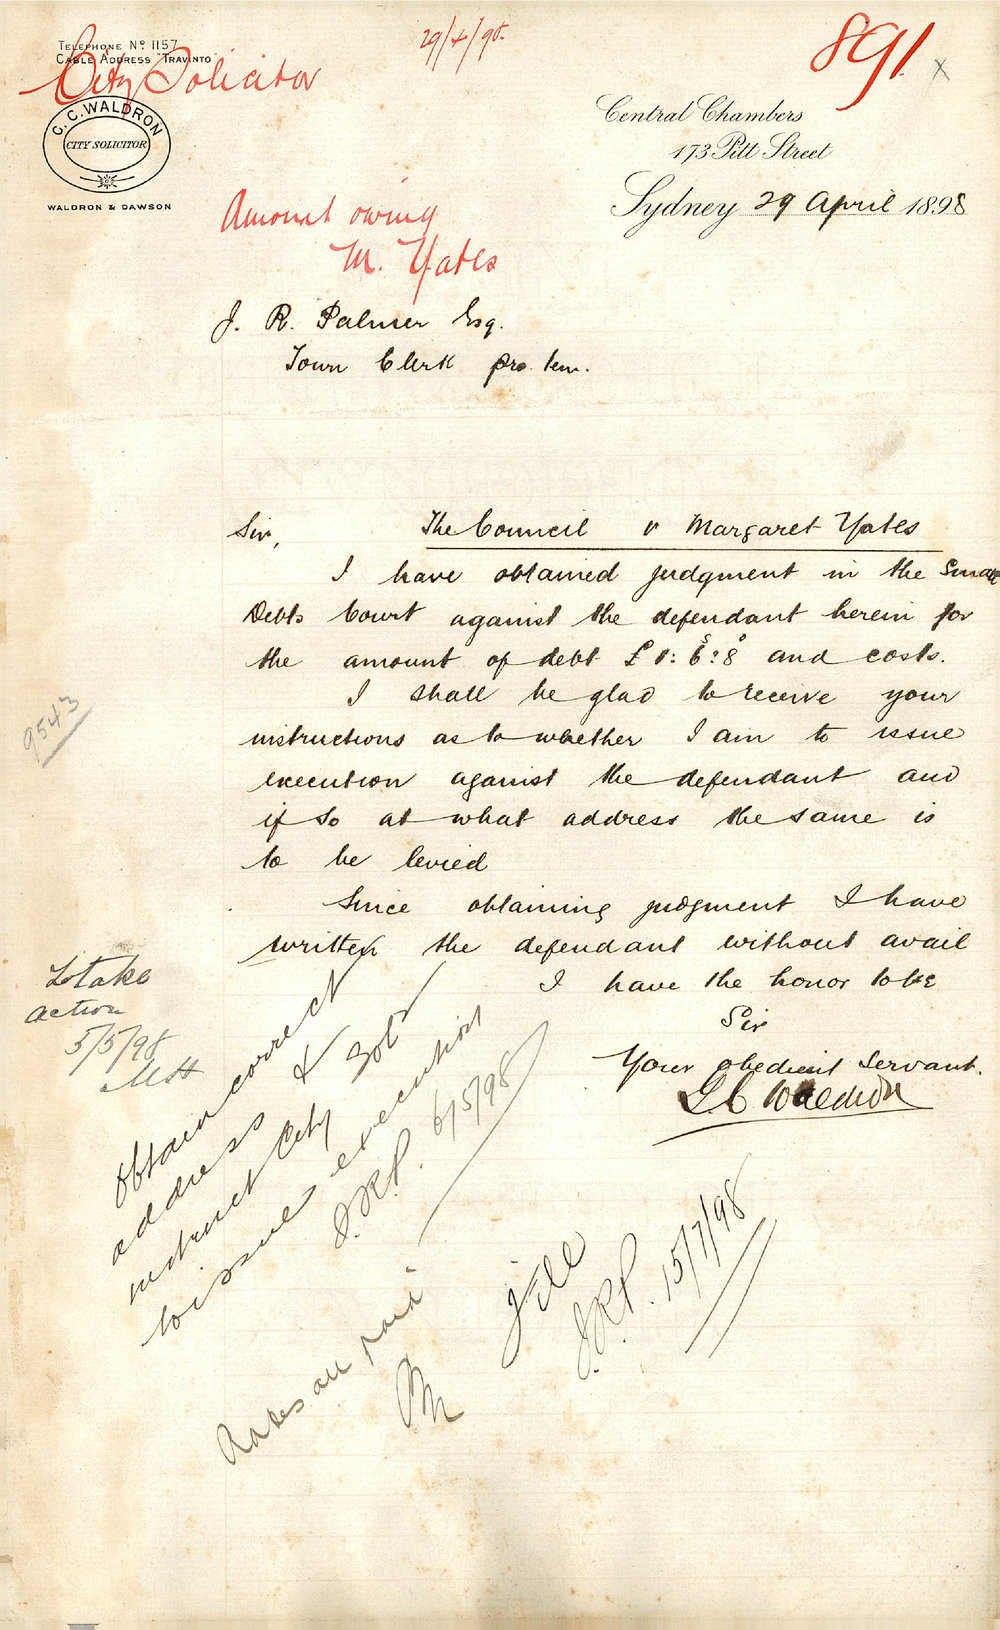 TELEPHONE Nº 1157
CABLE ADDRESS "TRAVINTO"
City Solicitor
29/4/98
891
x
C. C. WALDRON
CITY SOLICITOR
WALDRON & DAWSON
Central Chambers
173 Pitt Street
Sydney 29 April 1898
Amount owing
M. Yates
J. R. Palmer Esq.
Town Clerk pro. tem.
Sir, The Council v Margaret Yates
I have obtained judgment in the Small
Debts Court against the defendant herein for
the amount of debt £ 1: 6s: 8d and costs.
I shall be glad to receive your
instructions as to whether I am to issue
execution against the defendant and
if so at what address the same is
to be levied
Since obtaining judgment I have
written the defendant without avail
I have the honor to be
Sir
Your obedient Servant.
G C Waldron
9543
To take
action
5/5/98
Obtain correct
address &
instruct City Solr
to issue execution
J.R.P. 6/5/98
Rates all paid
file
J.R.P. 15/7/98